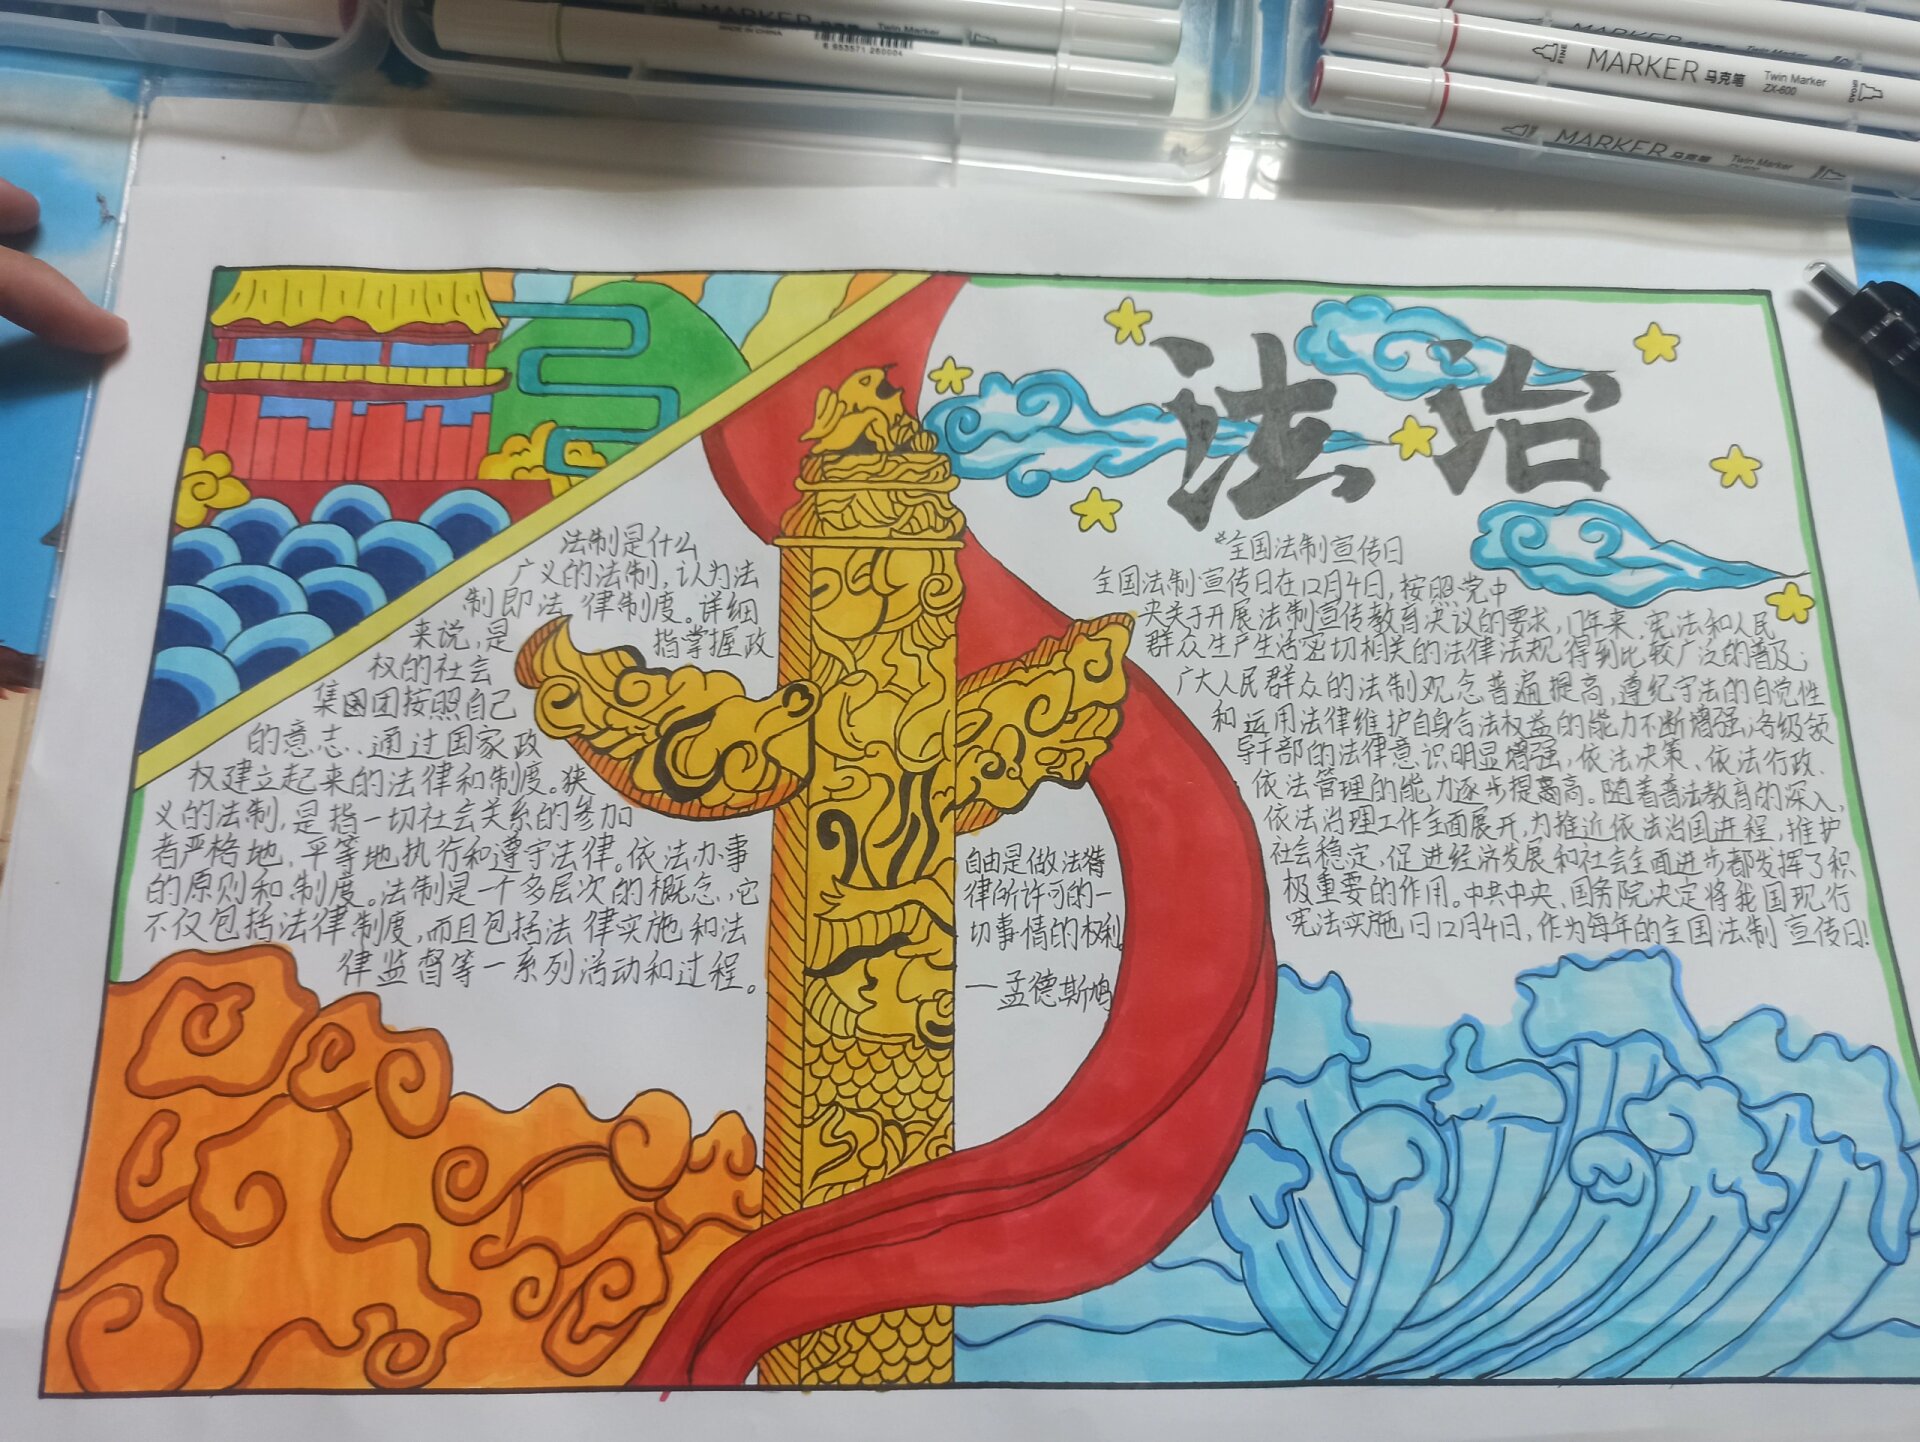 MARKER 马克笔 Twin Marker
MADE IN CHINA
6 953571 260004
FINE MARKER 马克笔 Twin Marker ZX-600 BROAD
MARKER 马克笔 Twin Marker
法治
法制是什么
广义的法制,认为法
制即法律制度。详细
来说,是指掌握政
权的社会
集团按照自己
的意志、通过国家政
权建立起来的法律和制度。狭
义的法制,是指一切社会关系的参加
者严格地、平等地执行和遵守法律。依法办事
的原则和制度。法制是一个多层次的概念,它
不仅包括法律制度,而且包括法律实施和法
律监督等一系列活动和过程。
自由是做法
律所许可的一
切事情的权利。
—孟德斯鸠
*全国法制宣传日
全国法制宣传日在12月4日,按照党中
央关于开展法制宣传教育决议的要求,17年来,宪法和人民
群众生产生活密切相关的法律法规得到比较广泛的普及;
广大人民群众的法制观念普遍提高,遵纪守法的自觉性
和运用法律维护自身合法权益的能力不断增强;各级领
导干部的法律意识明显增强,依法决策、依法行政、
依法管理的能力逐步提高。随着普法教育的深入,
依法治理工作全面展开,为推近依法治国进程,推护
社会稳定,促进经济发展和社会全面进步都发挥了积
极重要的作用。中共中央、国务院决定将我国现行
宪法实施日12月4日,作为每年的全国法制宣传日!